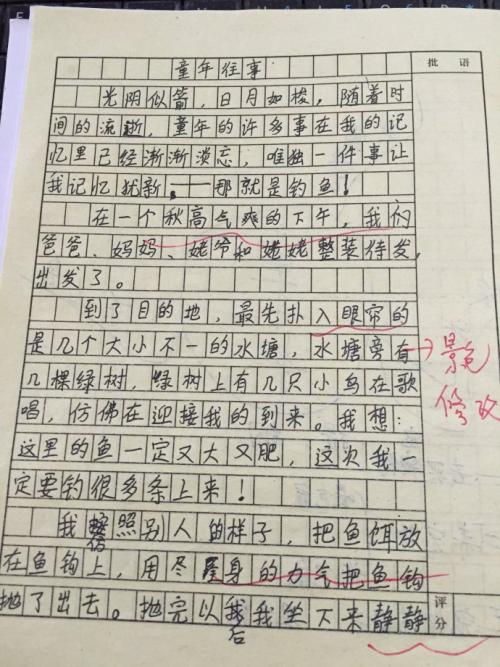 批语
童年往事
光阴似箭，日月如梭，随着时
间的流逝，童年的许多事在我的记
忆里已经渐渐淡忘，唯独一件事让
我记忆犹新——那就是钓鱼！
在一个秋高气爽的下午，我的
爸爸、妈妈、姥爷和姥姥整装待发，
出发了。
到了目的地，最先扑入眼帘的
是几个大小不一的水塘，水塘旁有
景色
几棵绿树，绿树上有几只小鸟在歌
修改
唱，仿佛在迎接我的到来。我想：
这里的鱼一定又大又肥，这次我一
定要钓很多条上来！
我仿照别人的样子，把鱼饵放
在鱼钩上，用尽身的力气把鱼钩
抛了出去。抛完以后我坐下来静静
评分